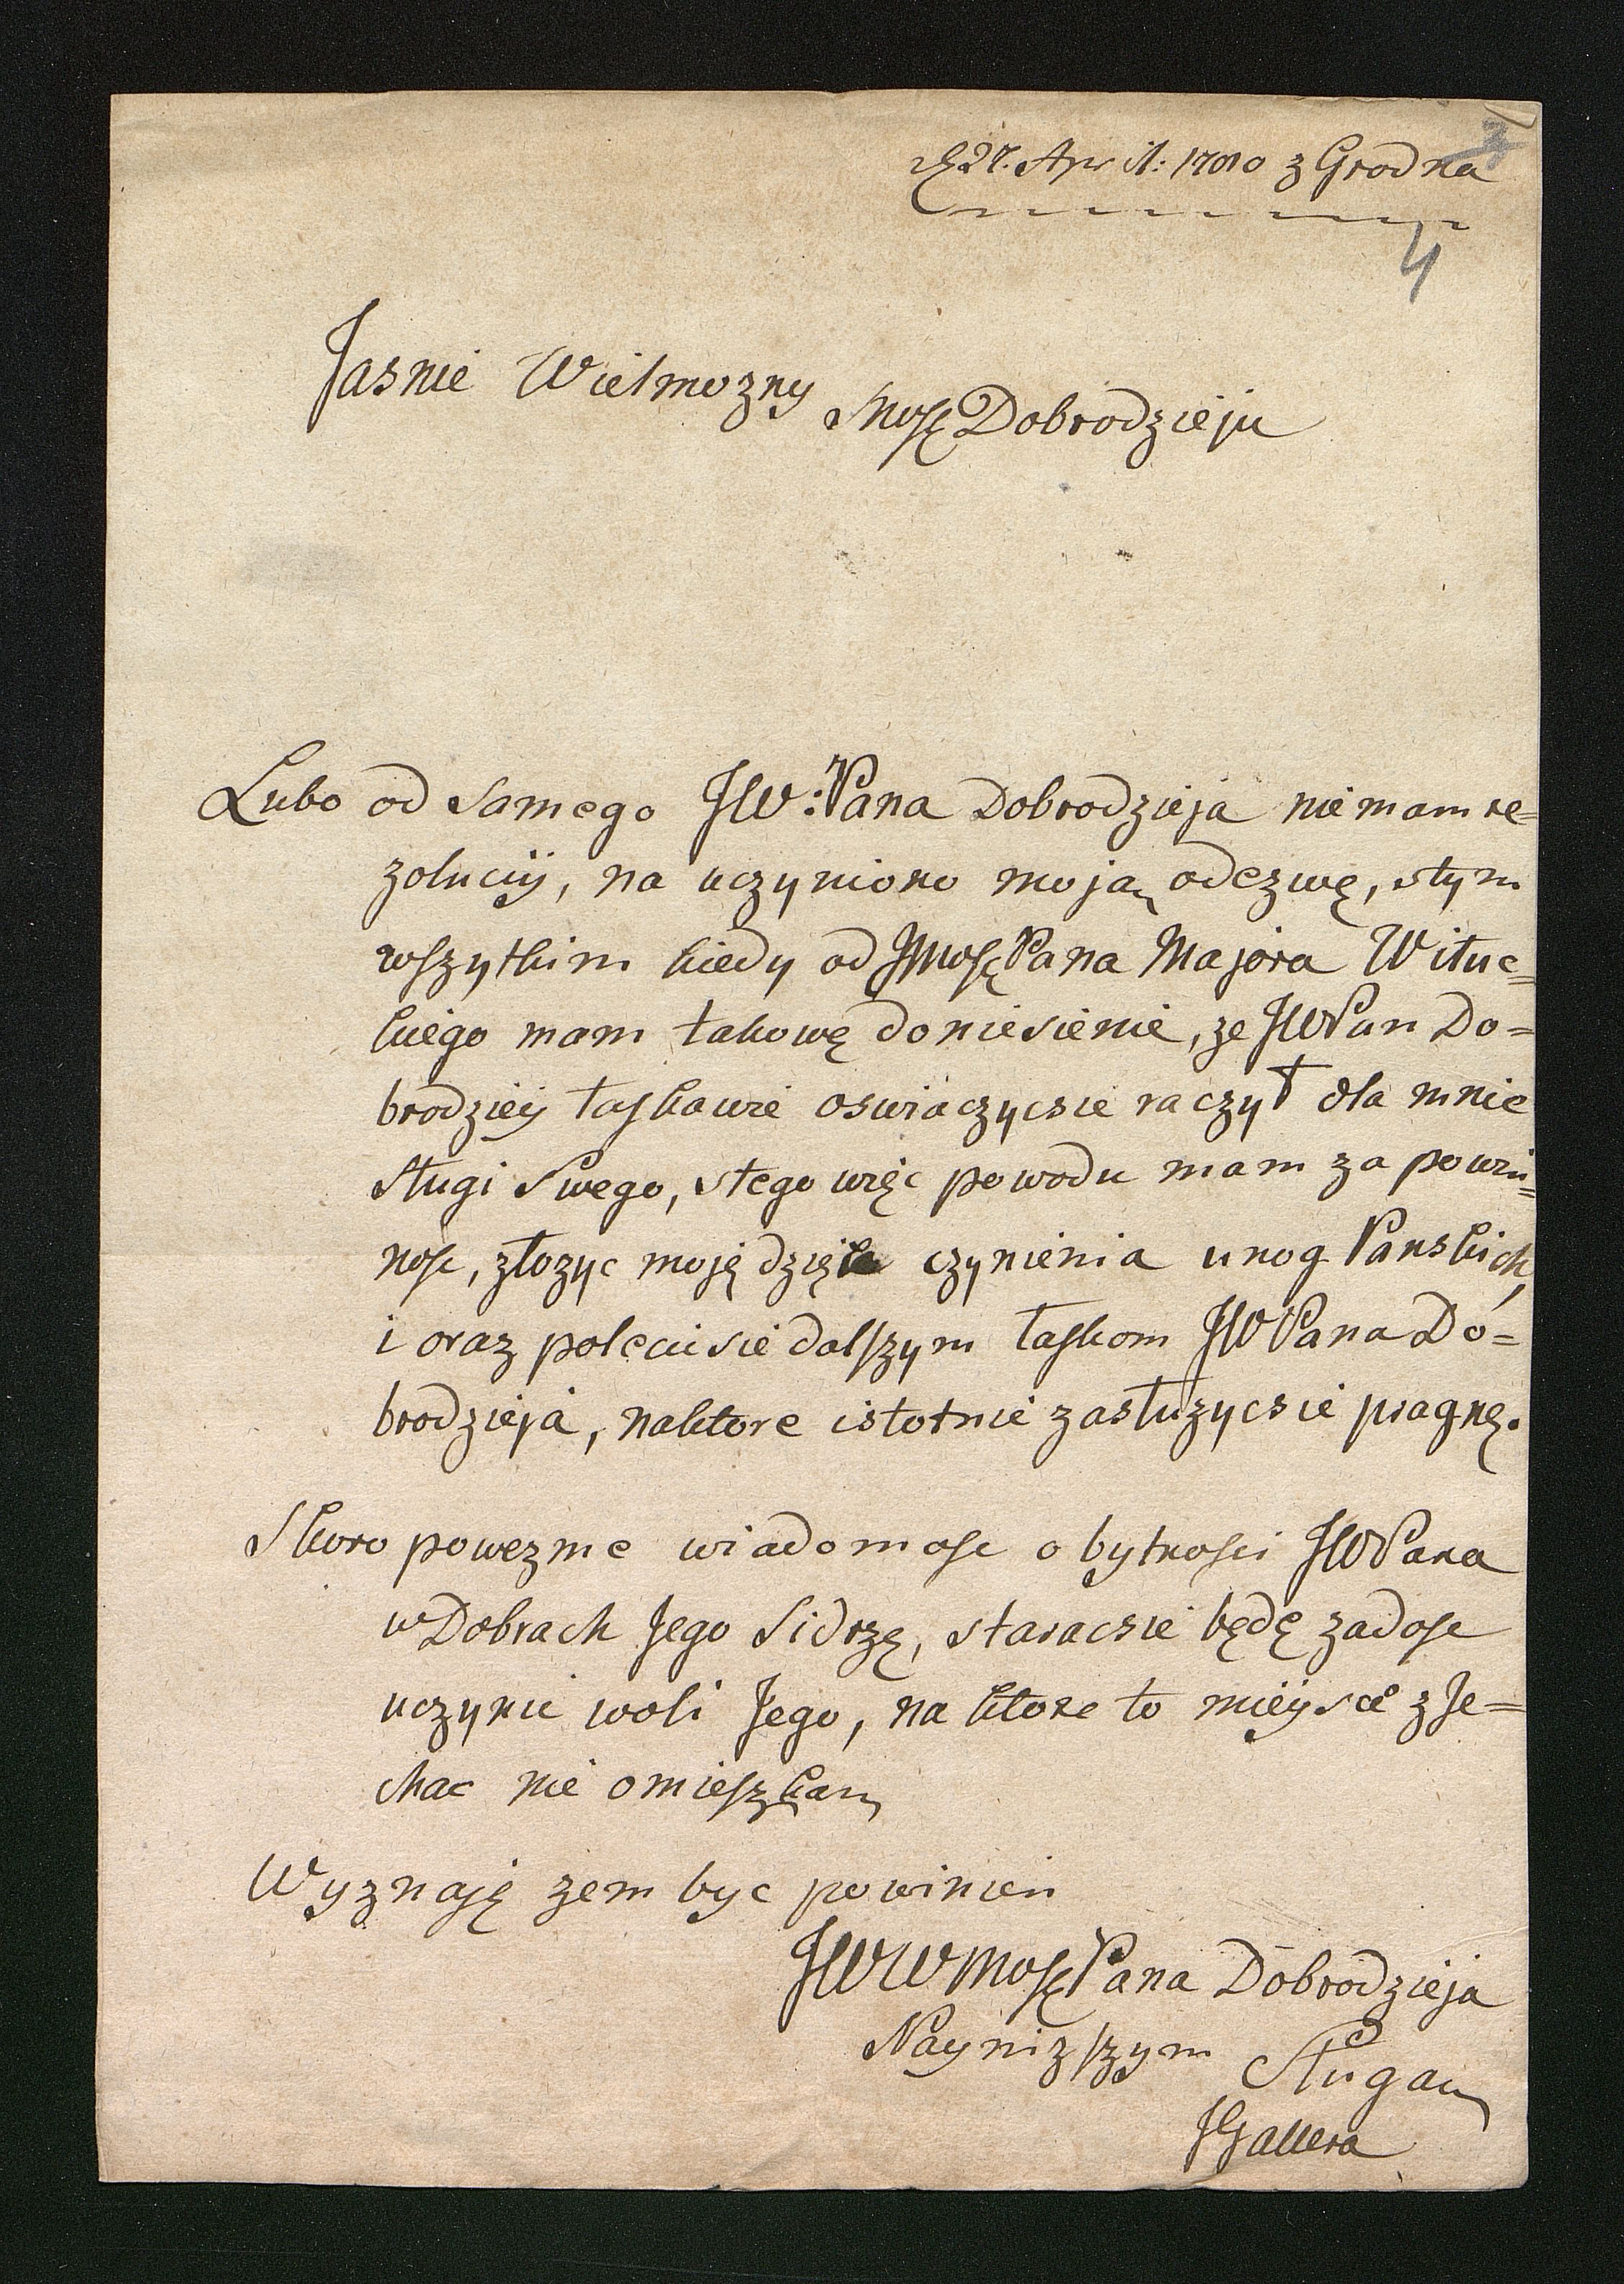 27. April: 1780 z Grodna
4
Jasnie Wielmozny
Mosę Dobrodzieju
Lubo od samego JW: Pana Dobrodzieja nie mam re=
zolucij, na uczyniono moją odezwę, stym
wszytkim kiedy od JMosę Pana Majora Wituc=
kiego mam takowę doniesienie, ze JWPan Do=
brodziey łaskawie oswiaczycsie raczył dla mnie
sługi swego, stego więc powodu mam za powin=
nosc, złozyc moję dzięk czynienia unog Panskich,
i oraz polecic sie dalszym łaskom JWPana Do=
brodzieja, naktore istotnie zasłuzycsie pragnę.
Skoro powezme wiadomosc o bytnosci JWPana
w Dobrach Jego Sidrzę, staracsie będę zadosc
uczynic woli Jego, na ktore to mieysce zje=
chac nie omieszkam
Wyznaję zem byc powinien
JWWMosę Pana Dobrodzieja
Naynizszym Sługą
JGallera